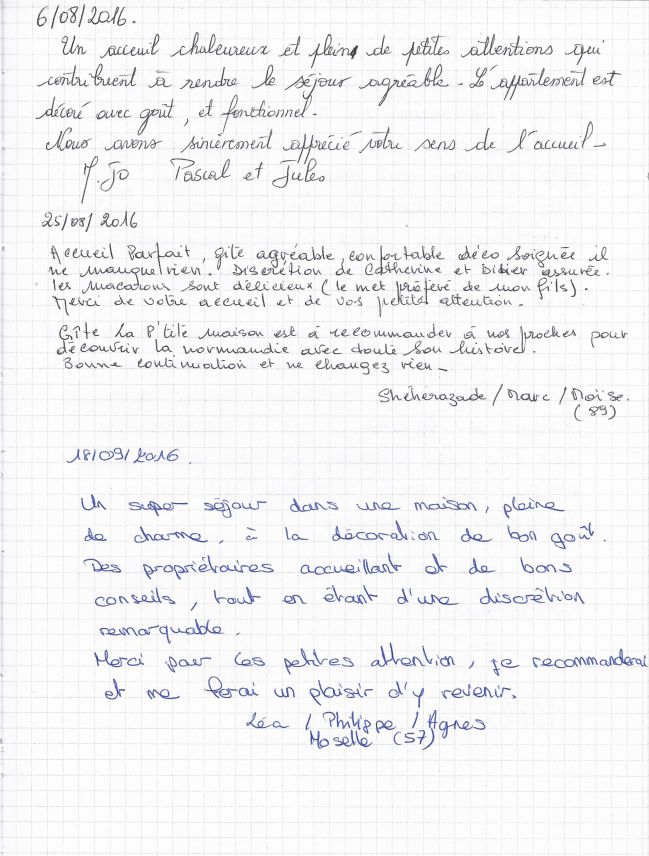 6/08/2016.
Un acceuil chaleureux et plein de petites attentions qui
contribuent à rendre le séjour agréable. L'appartement est
décoré avec goût, et fonctionnel.
Nous avons sincèrement apprécié votre sens de l'accueil -
M. Jo Pascal et Jules
25/08/2016
Accueil Parfait, gîte agréable, confortable déco soignée il
ne manque rien. Discrétion de Catherine et Didier assurée.
les macarons sont délicieux (le met préféré de mon fils).
Merci de votre accueil et de vos petites attention.
Gîte la P'tite maison est à recommander à nos proches pour
découvrir la normandie avec toute son histoire.
Bonne continuation et ne changez rien -
Shéhérazade / Marc / Moïse.
(89)
18/09/2016.
Un super séjour dans une maison, pleine
de charme, à la décoration de bon goût.
Des propriétaires accueillant et de bons
conseils, tout en étant d'une discrétion
remarquable.
Merci pour ces petites attention, je recommanderai
et me ferai un plaisir d'y revenir.
Léa / Philippe / Agnes
Moselle (57)